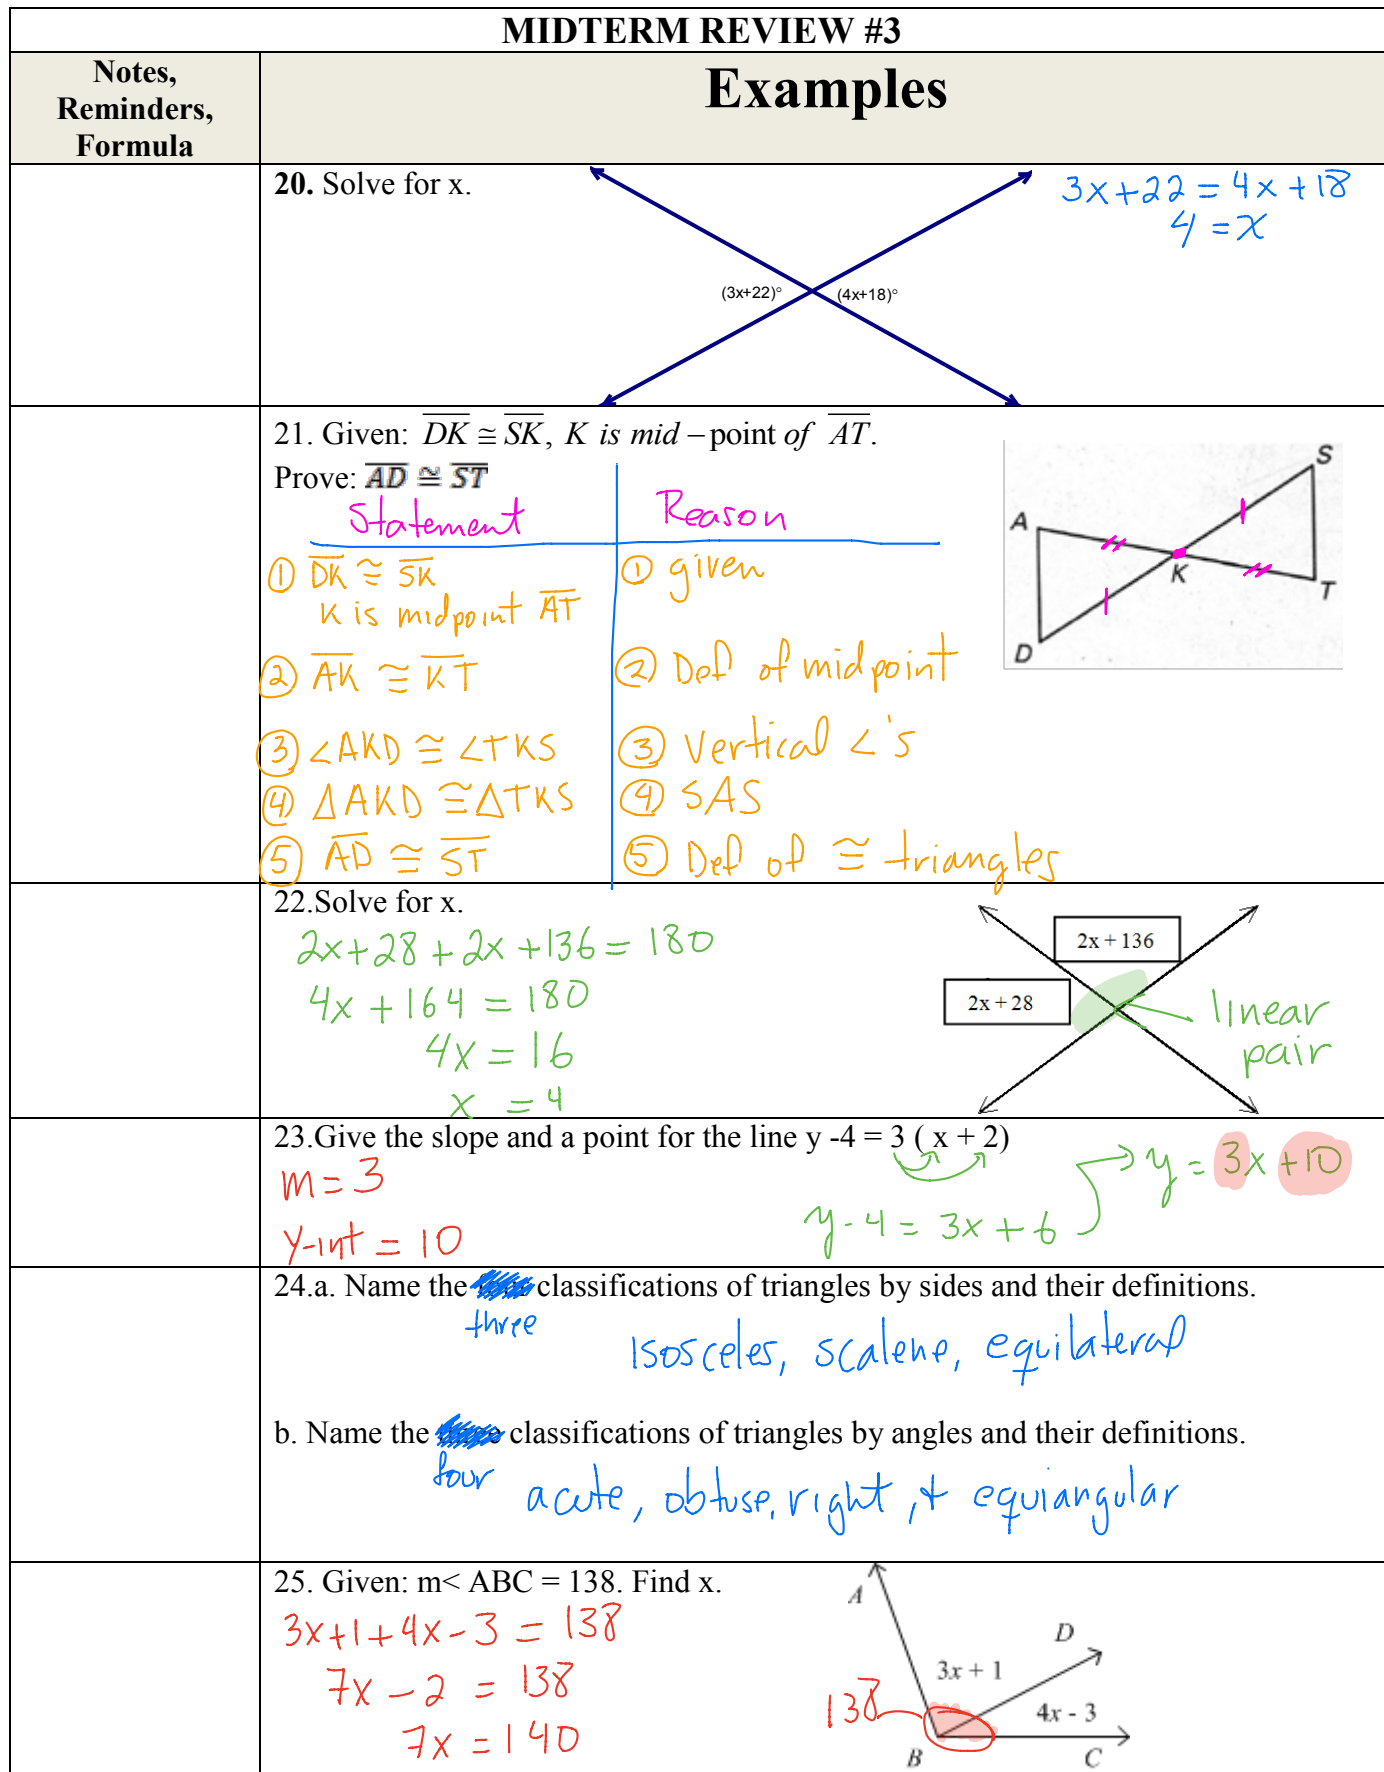 MIDTERM REVIEW #3
Notes,
Reminders,
Formula
Examples
20. Solve for x.
3x+22 = 4x+18
4 = x
(3x+22)°
(4x+18)°
21. Given: D̅K̅ ≅ S̅K̅, K is mid – point of A̅T̅.
Prove: A̅D̅ ≅ S̅T̅
Statement
Reason
① D̅K̅ ≅ S̅K̅
K is midpoint A̅T̅
① given
② A̅K̅ ≅ K̅T̅
② Def of midpoint
③ ∠AKD ≅ ∠TKS
③ Vertical ∠'s
④ △AKD ≅ △TKS
④ SAS
⑤ A̅D̅ ≅ S̅T̅
⑤ Def of ≅ triangles
S
A
K
T
D
22.Solve for x.
2x+28 + 2x +136 = 180
4x + 164 = 180
4x = 16
x = 4
2x + 136
2x + 28
linear
pair
23.Give the slope and a point for the line y -4 = 3 ( x + 2)
m = 3
y-int = 10
y - 4 = 3x + 6
y = 3x +10
24.a. Name the classifications of triangles by sides and their definitions.
three
Isosceles, scalene, equilateral
b. Name the classifications of triangles by angles and their definitions.
four
acute, obtuse, right, + equiangular
25. Given: m< ABC = 138. Find x.
3x+1+4x-3 = 138
7x - 2 = 138
7x = 140
A
D
3x + 1
138
4x - 3
B
C